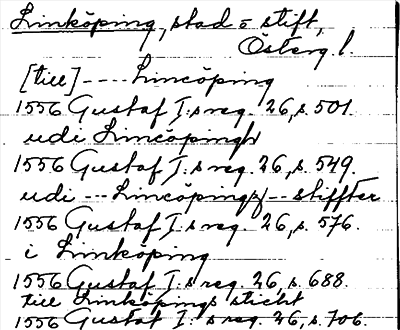 Linköping, stad o stift,
Österg. l.
[till] ---- Lincöping
1556 Gustaf I:s reg. 26, s. 501.
udi Lincöpingh
1556 Gustaf I:s reg. 26, s. 549.
udi --- Lincöpings -- stiffter
1556 Gustaf I:s reg. 26, s. 576.
i Linköping
1556 Gustaf I:s reg. 26, s. 688.
till Linköpings sticht
1556 Gustaf I:s reg. 26, s. 706.